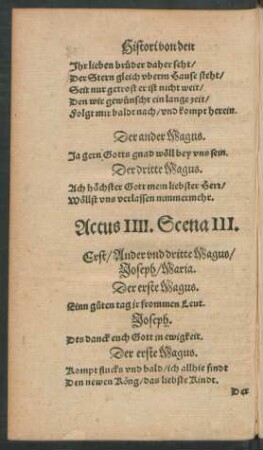 Histori von den
Ihr lieben brüder daher seht/
Der Stern gleich vberm Hause steht/
Seit nur getrost er ist nicht weit/
Den wir gewünscht ein lange zeit/
Folgt mir baldt nach/vnd kompt herein.
Der ander Magus.
Ja gern Gotts gnad wöll bey vns sein.
Der dritte Magus.
Ach höchster Gott mein liebster Herr/
Wöllst vns verlassen nimmermehr.
Actus IIII. Scena III.
Erst/Ander vnd dritte Magus/
Joseph/Maria.
Der erste Magus.
Einn güten tag ir frommen Leut.
Joseph.
Dts danck euch Gott in ewigkeit.
Der erste Magus.
Kompt flucks vnd bald/ich allhie findt
Den newen Köng/das liebste Kindt.
Der